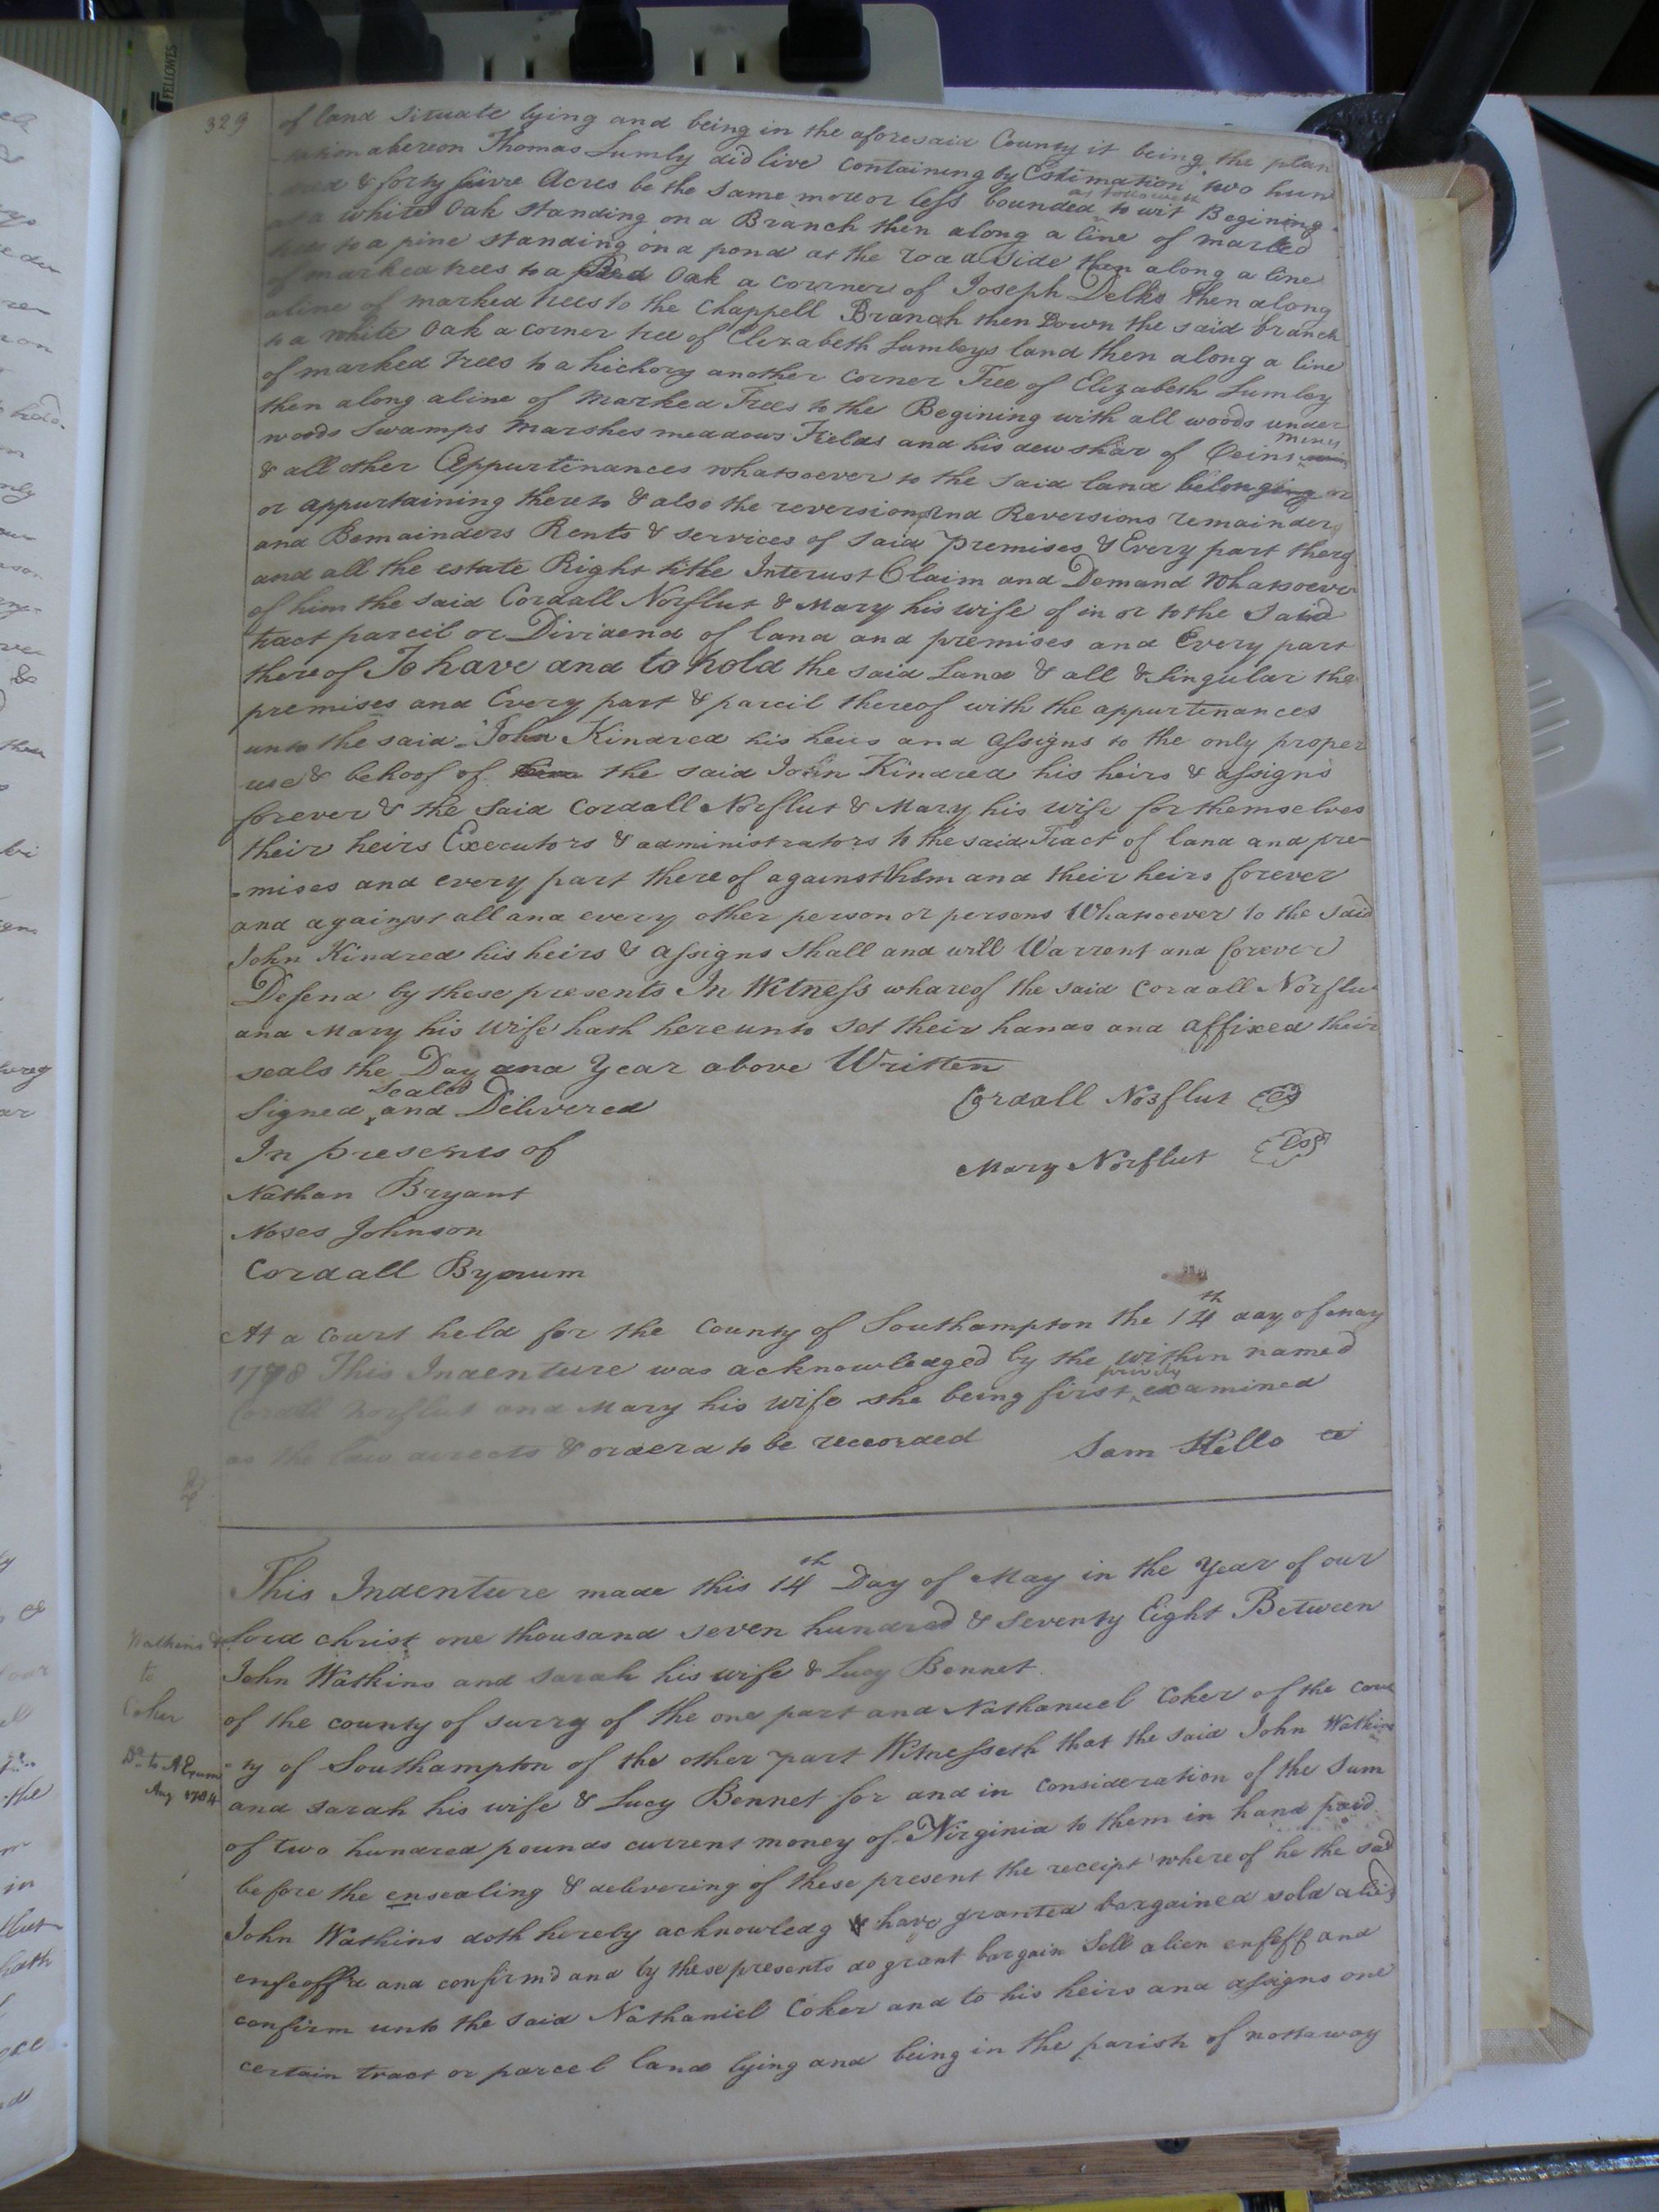 FELLOWES
329
of land Situate lying and being in the aforesaid County it being the plan
-tation whereon Thomas Lumly did live Containing by Estimation two hun
-dred & forty five Acres be the Same more or less bounded as followeth to wit Begining
at a white Oak standing on a Branch then along a line of marked
trees to a pine standing on a pond at the road side then along a line
of marked trees to a Red Oak a corner of Joseph Delks then along
a line of marked trees to the Chappell Branch then Down the said branch
to a white Oak a corner tree of Elizabeth Lumleys land then along a line
of marked trees to a hickory another Corner Tree of Elizabeth Lumley
then along a line of Marked Trees to the Begining with all woods under
woods Swamps Marshes meadows Fields and his dew shar of Veins mines
& all other Appurtinances whatsoever to the said land belonging or
or appurtaining thereto & also the reversion and Reversions remainder
and Remainders Rents & services of said premises & Every part therof
and all the estate Right title Interust Claim and Demand Whatsoever
of him the said Cordall Norflut & Mary his wife of in or to the Said
tract parcil or Dividend of land and premises and Every part
thereof To have and to hold the said Land & all & Singular the
premises and Every part & parcil thereof with the appurtenances
unto the said John Kindred his heirs and assigns to the only proper
use & behoof of the said John Kindred his heirs & assigns
forever & the Said Cordall Norflut & Mary his wife for themselves
their heirs Executors & administrators to the said Tract of land and pre-
-mises and every part thereof against them and their heirs forever
and against all and every other person or persons Whatsoever to the said
John Kindred his heirs & assigns shall and will Warrent and forever
Defend by these presents In Witness whareof the said Cordall Norflu
and Mary his Wife hath hereunto set their hands and affixed their
seals the Day and Year above Written
Signed Sealed and Delivered
Cordall Norflut
In presents of
Mary Norflut
Nathan Bryant
Moses Johnson
Cordall Bynum
At a Court held for the County of Southampton the 14th day of may
1778 This Indenture was acknowledged by the within named
Cordall Norflut and Mary his wife she being first privily examined
as the law directs & orderd to be reccorded
Sam Kello
This Indenture made this 14th Day of May in the Year of our
Lord Christ one thousand seven hundred & seventy Eight Between
John Watkins and Sarah his wife & Lucy Bennet
of the county of surry of the one part and Nathanuel Coker of the coun
-ty of Southampton of the other part Witnesseth that the said John Watkins
and sarah his wife & Lucy Bennet for and in consideration of the Sum
of two hundred pounds current money of Virginia to them in hand paid
before the ensealing & delivering of these present the receipt whereof he the said
John Watkins doth hereby acknowledg have granted bargained sold
enfeoff'd and confirm'd and by these presents do grant bargain Sell alien enfeff and
confirm unto the said Nathaniel Coker and to his heirs and assigns one
certain tract or parcel land lying and being in the parish of nottaway
Watkins &
to
Coker
Aug 1784